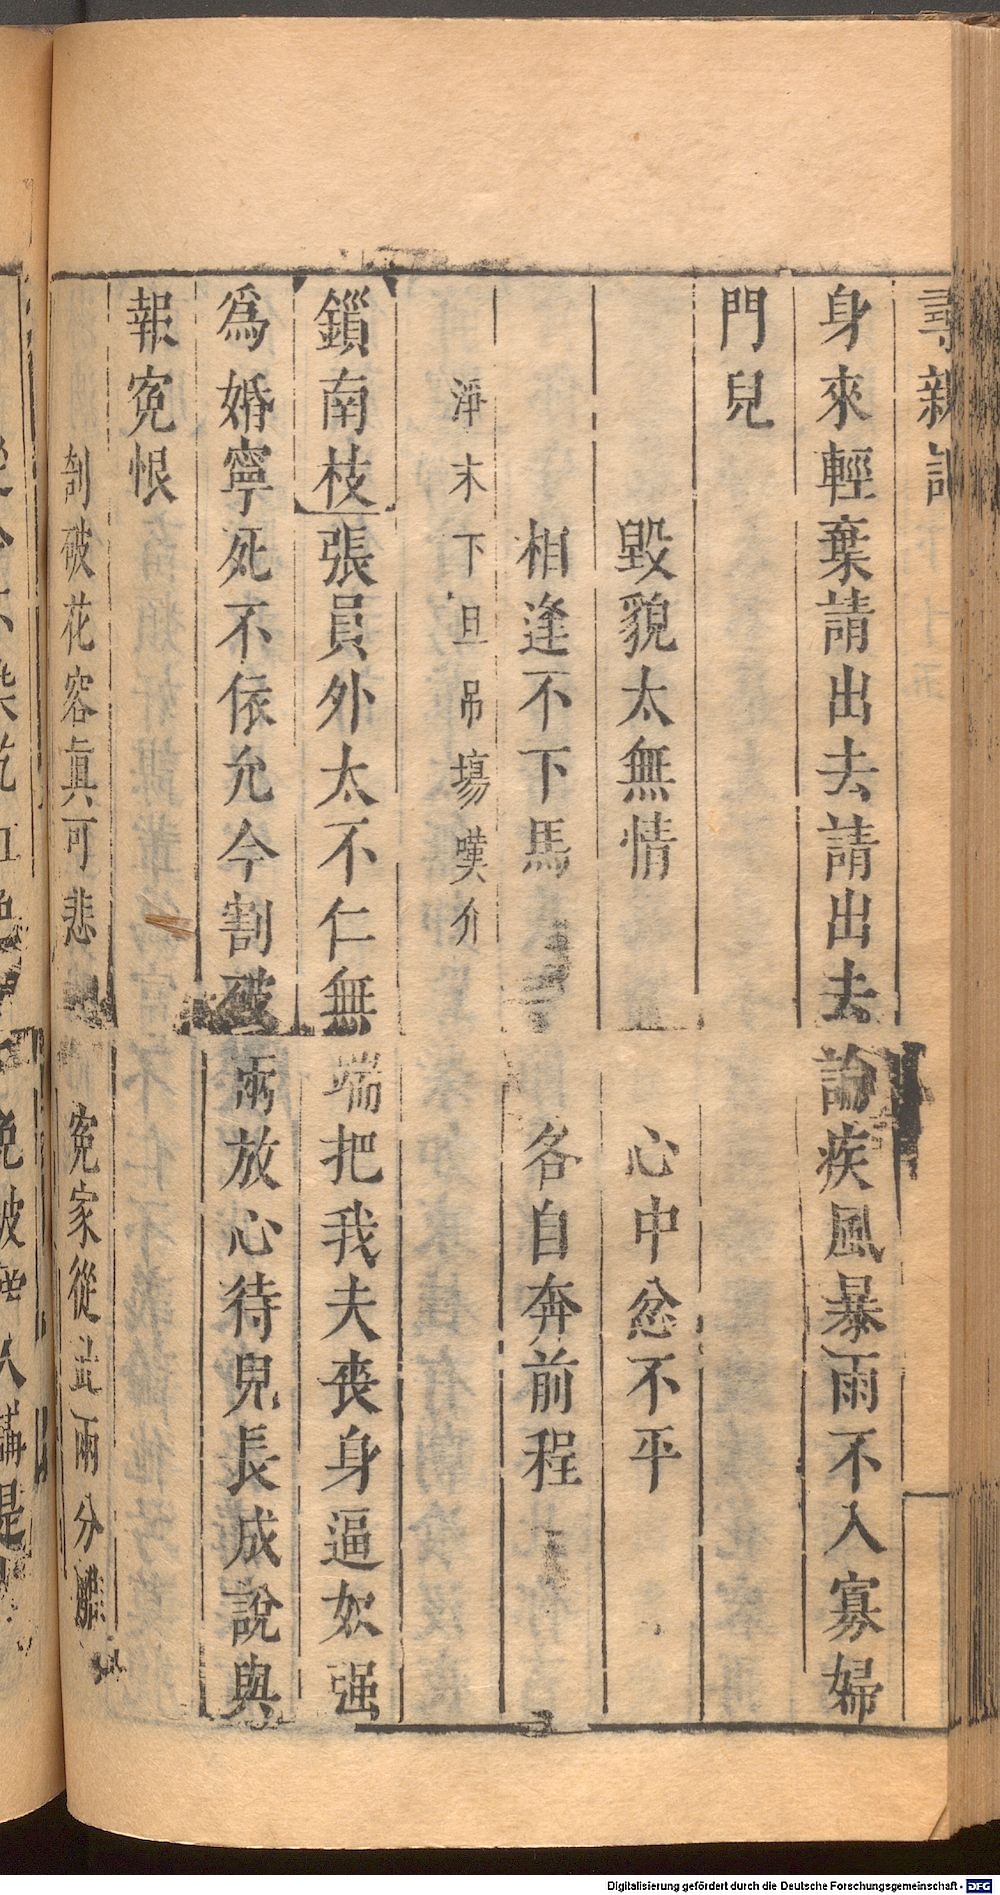 尋親記
身來輕棄請出去請出去論疾風暴雨不入寡婦
門兒
毀貌太無情　心中忿不平
相逢不下馬　各自奔前程
淨末下旦吊場嘆介
鎖南枝張員外太不仁無端把我夫喪身逼奴强
爲婚寧死不依允今割破兩放心待兒長成說與
報寃恨
割破花容眞可悲　寃家從此兩分離
Digitalisierung gefördert durch die Deutsche Forschungsgemeinschaft - DFG